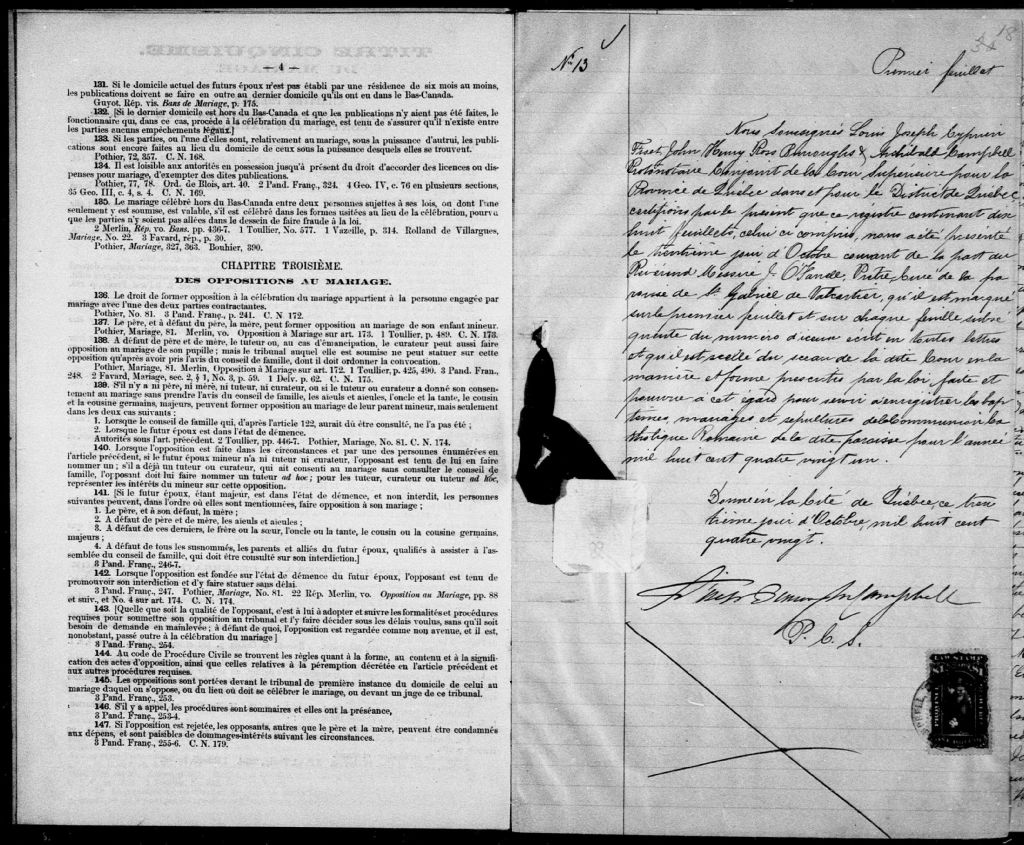 — 4 —
131. Si le domicile actuel des futurs époux n'est pas établi par une résidence de six mois au moins,
les publications doivent se faire en outre au dernier domicile qu'ils ont eu dans le Bas-Canada.
Guyot. Rép. vis. Bans de Mariage, p. 175.
132. [Si le dernier domicile est hors du Bas-Canada et que les publications n'y aient pas été faites, le
fonctionnaire qui, dans ce cas, procède à la célébration du mariage, est tenu de s'assurer qu'il n'existe entre
les parties aucuns empêchements légaux.]
133. Si les parties, ou l'une d'elles sont, relativement au mariage, sous la puissance d'autrui, les publi-
cations sont encore faites au lieu du domicile de ceux sous la puissance desquels elles se trouvent.
Pothier, 72, 357. C. N. 168.
134. Il est loisible aux autorités en possession jusqu'à présent du droit d'accorder des licences ou dis-
penses pour mariage, d'exempter des dites publications.
Pothier, 77, 78. Ord. de Blois, art. 40. 2 Pand. Franç., 324. 4 Geo. IV, c. 76 en plusieurs sections,
35 Geo. III, c. 4, s. 4. C. N. 169.
135. Le mariage célébré hors du Bas-Canada entre deux personnes sujettes à ses lois, ou dont l'une
seulement y est soumise, est valable, s'il est célébré dans les formes usitées au lieu de la célébration, pourvu
que les parties n'y soient pas allées dans le dessein de faire fraude à la loi.
2 Merlin, Rép. vo. Bans, pp. 436-7. 1 Toullier, No. 577. 1 Vazeille, p. 314. Rolland de Villargues,
Mariage, No. 22. 3 Favard, rép., p. 30.
Pothier, Mariage, 327, 363. Bouhier, 390.
CHAPITRE TROISIÈME.
DES OPPOSITIONS AU MARIAGE.
136. Le droit de former opposition à la célébration du mariage appartient à la personne engagée par
mariage avec l'une des deux parties contractantes.
Pothier, No. 81. 3 Pand. Franç., p. 241. C. N. 172.
137. Le père, et à défaut du père, la mère, peut former opposition au mariage de son enfant mineur.
Pothier, Mariage, 81. Merlin, vo. Opposition à Mariage sur art. 173. 1 Toullier, p. 489. C. N. 173.
138. A défaut de père et de mère, le tuteur ou, au cas d'émancipation, le curateur peut aussi faire
opposition au mariage de son pupille; mais le tribunal auquel elle est soumise ne peut statuer sur cette
opposition qu'après avoir pris l'avis du conseil de famille, dont il doit ordonner la convocation.
Pothier, Mariage, 81. Merlin, Opposition à Mariage sur art. 172. 1 Toullier, p. 425, 490. 3 Pand. Fran.,
248. 2 Favard, Mariage, sec. 2, § 1, No. 3, p. 59. 1 Delv. p. 62. C. N. 175.
139. S'il n'y a ni père, ni mère, ni tuteur, ni curateur, ou si le tuteur ou curateur a donné son consen-
tement au mariage sans prendre l'avis du conseil de famille, les aïeuls et aïeules, l'oncle et la tante, le cousin
et la cousine germains, majeurs, peuvent former opposition au mariage de leur parent mineur, mais seulement
dans les deux cas suivants :
1. Lorsque le conseil de famille qui, d'après l'article 122, aurait dû être consulté, ne l'a pas été ;
2. Lorsque le futur époux est dans l'état de démence.
Autorités sous l'art. précédent. 2 Toullier, pp. 446-7. Pothier, Mariage, No. 81. C. N. 174.
140. Lorsque l'opposition est faite dans les circonstances et par une des personnes énumérées en
l'article précédent, si le futur époux mineur n'a ni tuteur ni curateur, l'opposant est tenu de lui en faire
nommer un ; s'il a déjà un tuteur ou curateur, qui ait consenti au mariage sans consulter le conseil de
famille, l'opposant doit lui faire nommer un tuteur ad hoc ; pour les tuteur, curateur ou tuteur ad hoc,
représenter les intérêts du mineur sur cette opposition.
141. [Si le futur époux, étant majeur, est dans l'état de démence, et non interdit, les personnes
suivantes peuvent, dans l'ordre où elles sont mentionnées, faire opposition à son mariage ;
1. Le père, et à son défaut, la mère ;
2. A défaut de père et de mère, les aïeuls et aïeules ;
3. A défaut de ces derniers, le frère ou la sœur, l'oncle ou la tante, le cousin ou la cousine germains,
majeurs ;
4. A défaut de tous les susnommés, les parents et alliés du futur époux, qualifiés à assister à l'as-
semblée du conseil de famille, qui doit être consulté sur son interdiction.]
3 Pand. Franç., 246-7.
142. Lorsque l'opposition est fondée sur l'état de démence du futur époux, l'opposant est tenu de
promouvoir son interdiction et d'y faire statuer sans délai.
3 Pand. Franç., 247. Pothier, Mariage, No. 81. 22 Rép. Merlin, vo. Opposition au Mariage, pp. 88
et suiv., et No. 4 sur art. 174. C. N. 174.
143. [Quelle que soit la qualité de l'opposant, c'est à lui à adopter et suivre les formalités et procédures
requises pour soumettre son opposition au tribunal et l'y faire décider sous les délais voulus, sans qu'il soit
besoin de demande en mainlevée ; à défaut de quoi, l'opposition est regardée comme non avenue, et il est,
nonobstant, passé outre à la célébration du mariage]
3 Pand. Franç., 254.
144. Au code de Procédure Civile se trouvent les règles quant à la forme, au contenu et à la signifi-
cation des actes d'opposition, ainsi que celles relatives à la péremption décrétée en l'article précédent et
aux autres procédures requises.
145. Les oppositions sont portées devant le tribunal de première instance du domicile de celui au
mariage duquel on s'oppose, ou du lieu où doit se célébrer le mariage, ou devant un juge de ce tribunal.
3 Pand. Franç., 253.
146. S'il y a appel, les procédures sont sommaires et elles ont la préséance,
3 Pand. Franç., 253-4.
147. Si l'opposition est rejetée, les opposants, autres que le père et la mère, peuvent être condamnés
aux dépens, et sont paisibles de dommages-intérêts suivant les circonstances.
3 Pand. Franç., 255-6. C. N. 179.
No 13
18
34
Premier feuillet
Nous Soussignés Louis Joseph Cyprien
Fiset, John Henry Ross Burroughs & Archibald Campbell
Protonotaire Conjoint de la Cour Supérieure pour la
Province de Québec dans et pour le District de Québec,
certifions par le présent que ce régistre contenant dix
huit feuillets, celui ci compris, nous a été présenté
le trentième jour d'Octobre courant de la part du
Révérend Messire J. O'Farrell, Prêtre, Curé de la pa
roisse de St Gabriel de Valcartier, qu'il est marqué
sur le premier feuillet et sur chaque feuille subsé
quente du numéro d'iceux écrit en toutes lettres
et qu'il est scellé du sceau de la dite Cour en la
manière et forme prescrites par la loi faite et
pourvue à cet égard pour servir à enregistrer les bap
têmes, mariages et sépultures de la Communion Ca
tholique Romaine de la dite paroisse pour l'année
mil huit cent quatre vingt un.
Donné en la Cité de Québec, ce tren
tième jour d'Octobre, mil huit cent
quatre vingt.
Fiset Burroughs Campbell
P. C. S.
LAW STAMP